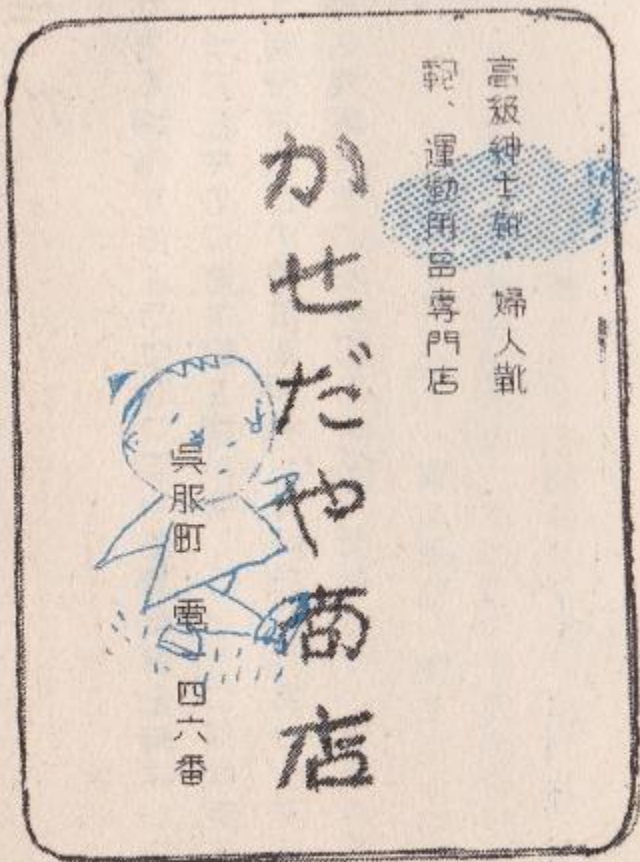 高級紳士靴、婦人靴
鞄、運動用品専門店
かせだや商店
呉服町 電 四六番